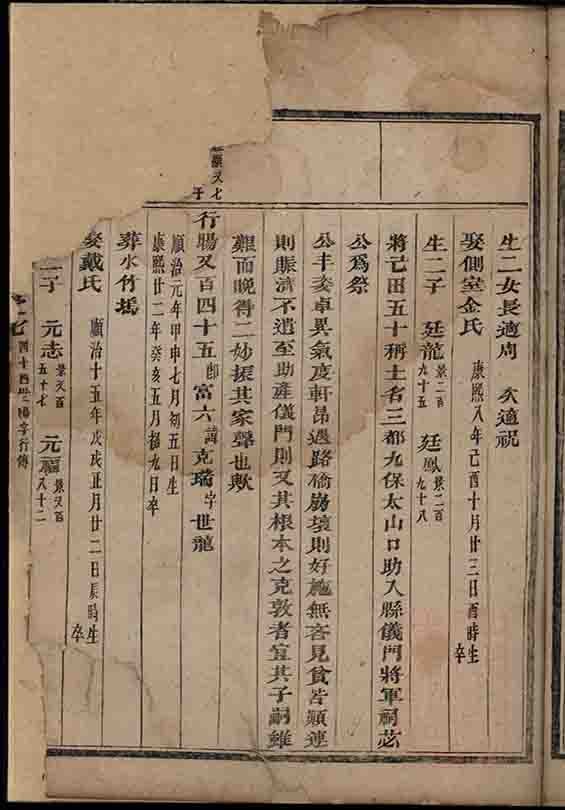 生二女長適周 次適祝
娶側室金氏 康熙八年己酉十月廿三日酉時生 卒
生二子 廷龍 景二百九十五 廷鳳 景二百九十八
將己田五十稱土名三都九保太山口助入縣儀門將軍祠苾
公爲祭
公丰姿卓異氣度軒昂遇路橋崩壞則好施無吝見貧苦顛連
則賑濟不遺至助產儀門則又其根本之克敦者宜其子嗣雖
艱而晚得二妙振其家聲也歟
又七
子
行賜又百四十五 即富六 諱克瑞 字世龍
順治元年甲申七月初五日生
康熙廿二年癸亥五月初九日卒
葬水竹塢
娶戴氏 順治十五年戊戌正月廿二日辰時生 卒
二子 元志 景又百五十七 元福 景又百八十二
四十四世 賜字行傳